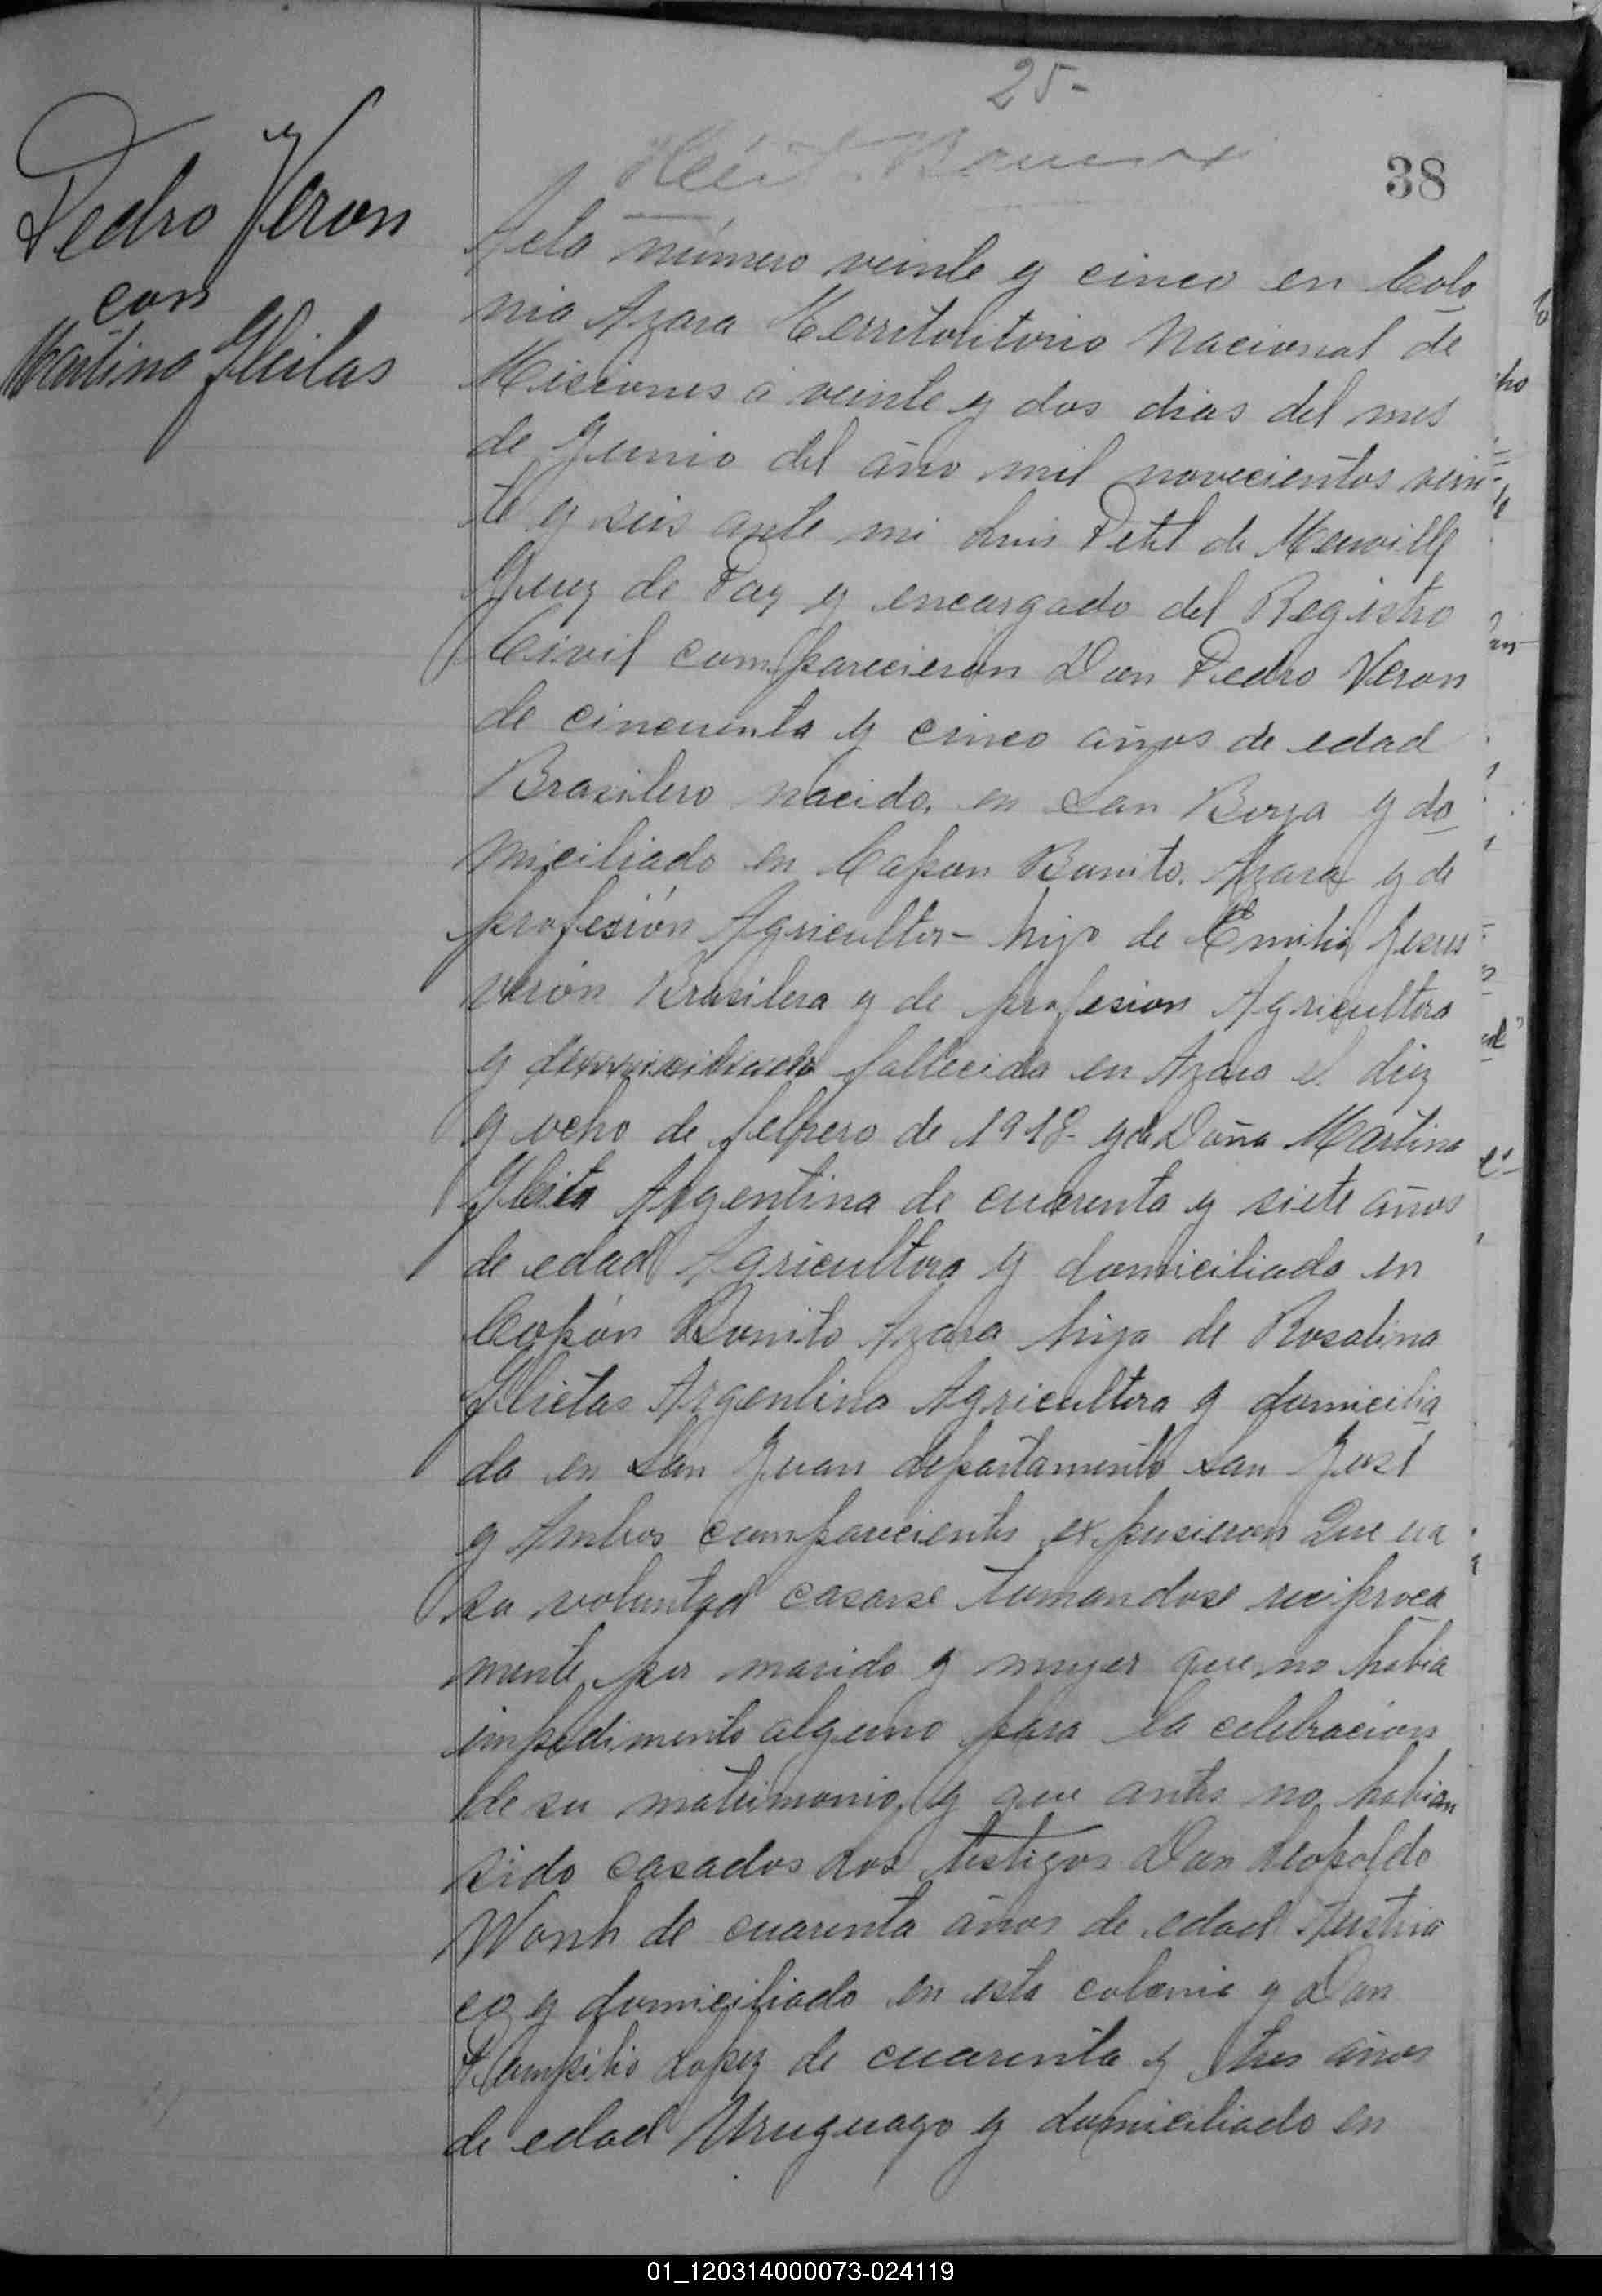 25-
38
Pedro Veron
con
Martina Gleitas
Acta número veinte y cinco en Colo
nia Azara Territoritorio Nacional de
Misiones á veinte y dos dias del mes
de Junio del año mil novecientos vein
te y seis ante mi Luis Petit de Meurville
Juez de Paz y encargado del Registro
Civil comparecieron Don Pedro Veron
de cincuenta y cinco años de edad
Brasilero nacido en San Borja y do
miciliado en Capon Bonito. Azara y de
profesión Agricultor - hijo de Emilia Jesus
verón Brasilera y de profesion Agricultora
y domiciliada fallecida en Azara el diez
y ocho de febrero de 1918- y de Doña Martina
Gleita Argentina de cuarenta y siete años
de edad Agricultora y domiciliada en
Capón Bonito Azara hija de Rosalina
Glietas Argentina Agricultora y domicilia
da en San Juan departamento San José
y Ambos comparecientes expusieron Que era
su voluntad casarse tomandose reciproca
mente por marido y mujer que no habia
impedimento alguno para la celebracion
de su matrimonio, y que antes no habian
sido casados Los testigos Don Leopoldo
Wonh de cuarenta años de edad Austria
co y domiciliado en esta colonia y Don
Pampilio Lopez de cuarenta y tres años
de edad Uruguayo y domiciliado en
01_120314000073-024119